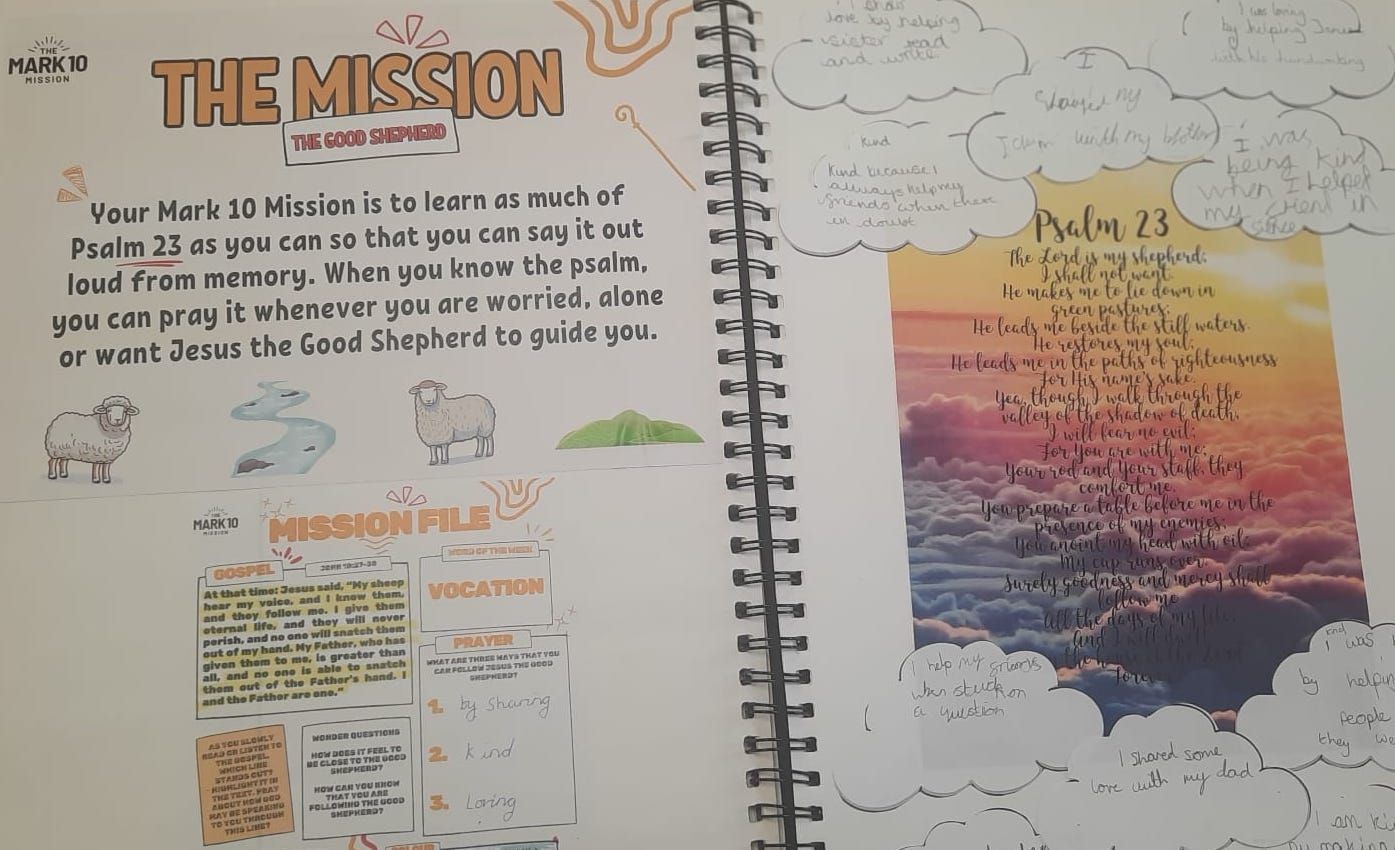 THE
MARK 10
MISSION
THE MISSION
THE GOOD SHEPHERD
Your Mark 10 Mission is to learn as much of
Psalm 23 as you can so that you can say it out
loud from memory. When you know the psalm,
you can pray it whenever you are worried, alone
or want Jesus the Good Shepherd to guide you.
THE
MARK 10
MISSION
MISSION FILE
GOSPEL
JOHN 10:27-30
At that time: Jesus said, "My sheep
hear my voice, and I know them,
and they follow me. I give them
eternal life, and they will never
perish, and no one will snatch them
out of my hand. My Father, who has
given them to me, is greater than
all, and no one is able to snatch
them out of the Father's hand. I
and the Father are one."
WORD OF THE WEEK
VOCATION
PRAYER
WHAT ARE THREE WAYS THAT YOU
CAN FOLLOW JESUS THE GOOD
SHEPHERD?
1. by sharing
2. kind
3. Loving
AS YOU SLOWLY
READ OR LISTEN TO
THE GOSPEL
WHICH LINE
STANDS OUT?
HIGHLIGHT IT IN
THE TEXT. PRAY
ABOUT HOW GOD
MAY BE SPEAKING
TO YOU THROUGH
THIS LINE?
WONDER QUESTIONS
HOW DOES IT FEEL TO
BE CLOSE TO THE GOOD
SHEPHERD?
HOW CAN YOU KNOW
THAT YOU ARE
FOLLOWING THE GOOD
SHEPHERD?
COLOUR
love by helping
sister read
and write
I was loving
by helping
with his handwriting
I
shared my
with my
Kind
Kind because I
always help my
friends when there
in doubt
I was
being kind
when I helped
my in
Psalm 23
The Lord is my shepherd;
I shall not want.
He makes me to lie down in
green pastures;
He leads me beside the still waters.
He restores my soul;
He leads me in the paths of righteousness
For His name's sake.
Yea, though I walk through the
valley of the shadow of death,
I will fear no evil;
For You are with me;
Your rod and Your staff, they
comfort me.
You prepare a table before me in the
presence of my enemies;
You anoint my head with oil;
My cup runs over.
Surely goodness and mercy shall
follow me
All the days of my life;
And I will dwell
the house of the Lord
Forever
I help my
when stuck on
a question
kind
I was
by helpin
People
they we
I shared some
love with my dad
I am ki